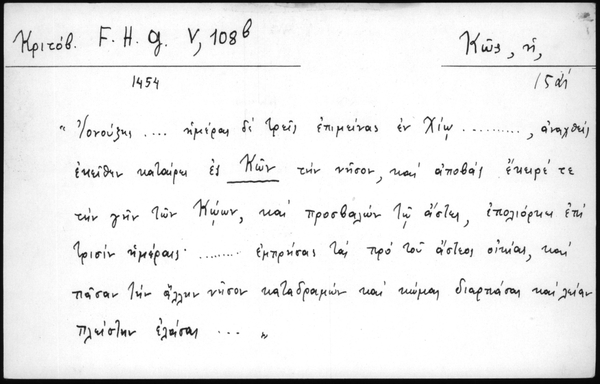 Κριτόβ. F. H. G. V, 108b
Κῶς, ἡ,
1454
„ Ἰονούζης .... ἡμέρας δὲ τρεῖς ἐπιμείνας ἐν Χίῳ .........., ἀναχθεὶς
ἐκεῖθεν καταίρει ἐς Κῶν τὴν νῆσον, καὶ ἀποβὰς ἔκειρέ τε
τὴν γῆν τῶν Κῴων, καὶ προσβαλὼν τῷ ἄστει, ἐπολιόρκει ἐπὶ
τρισὶν ἡμέραις· ........ ἐμπρήσας τὰς πρὸ τοῦ ἄστεος οἰκίας, καὶ
πᾶσαν τὴν ἄλλην νῆσον καταδραμὼν καὶ κώμας διαρπάσας καὶ λείαν
πλείστην ἐλάσας ... „